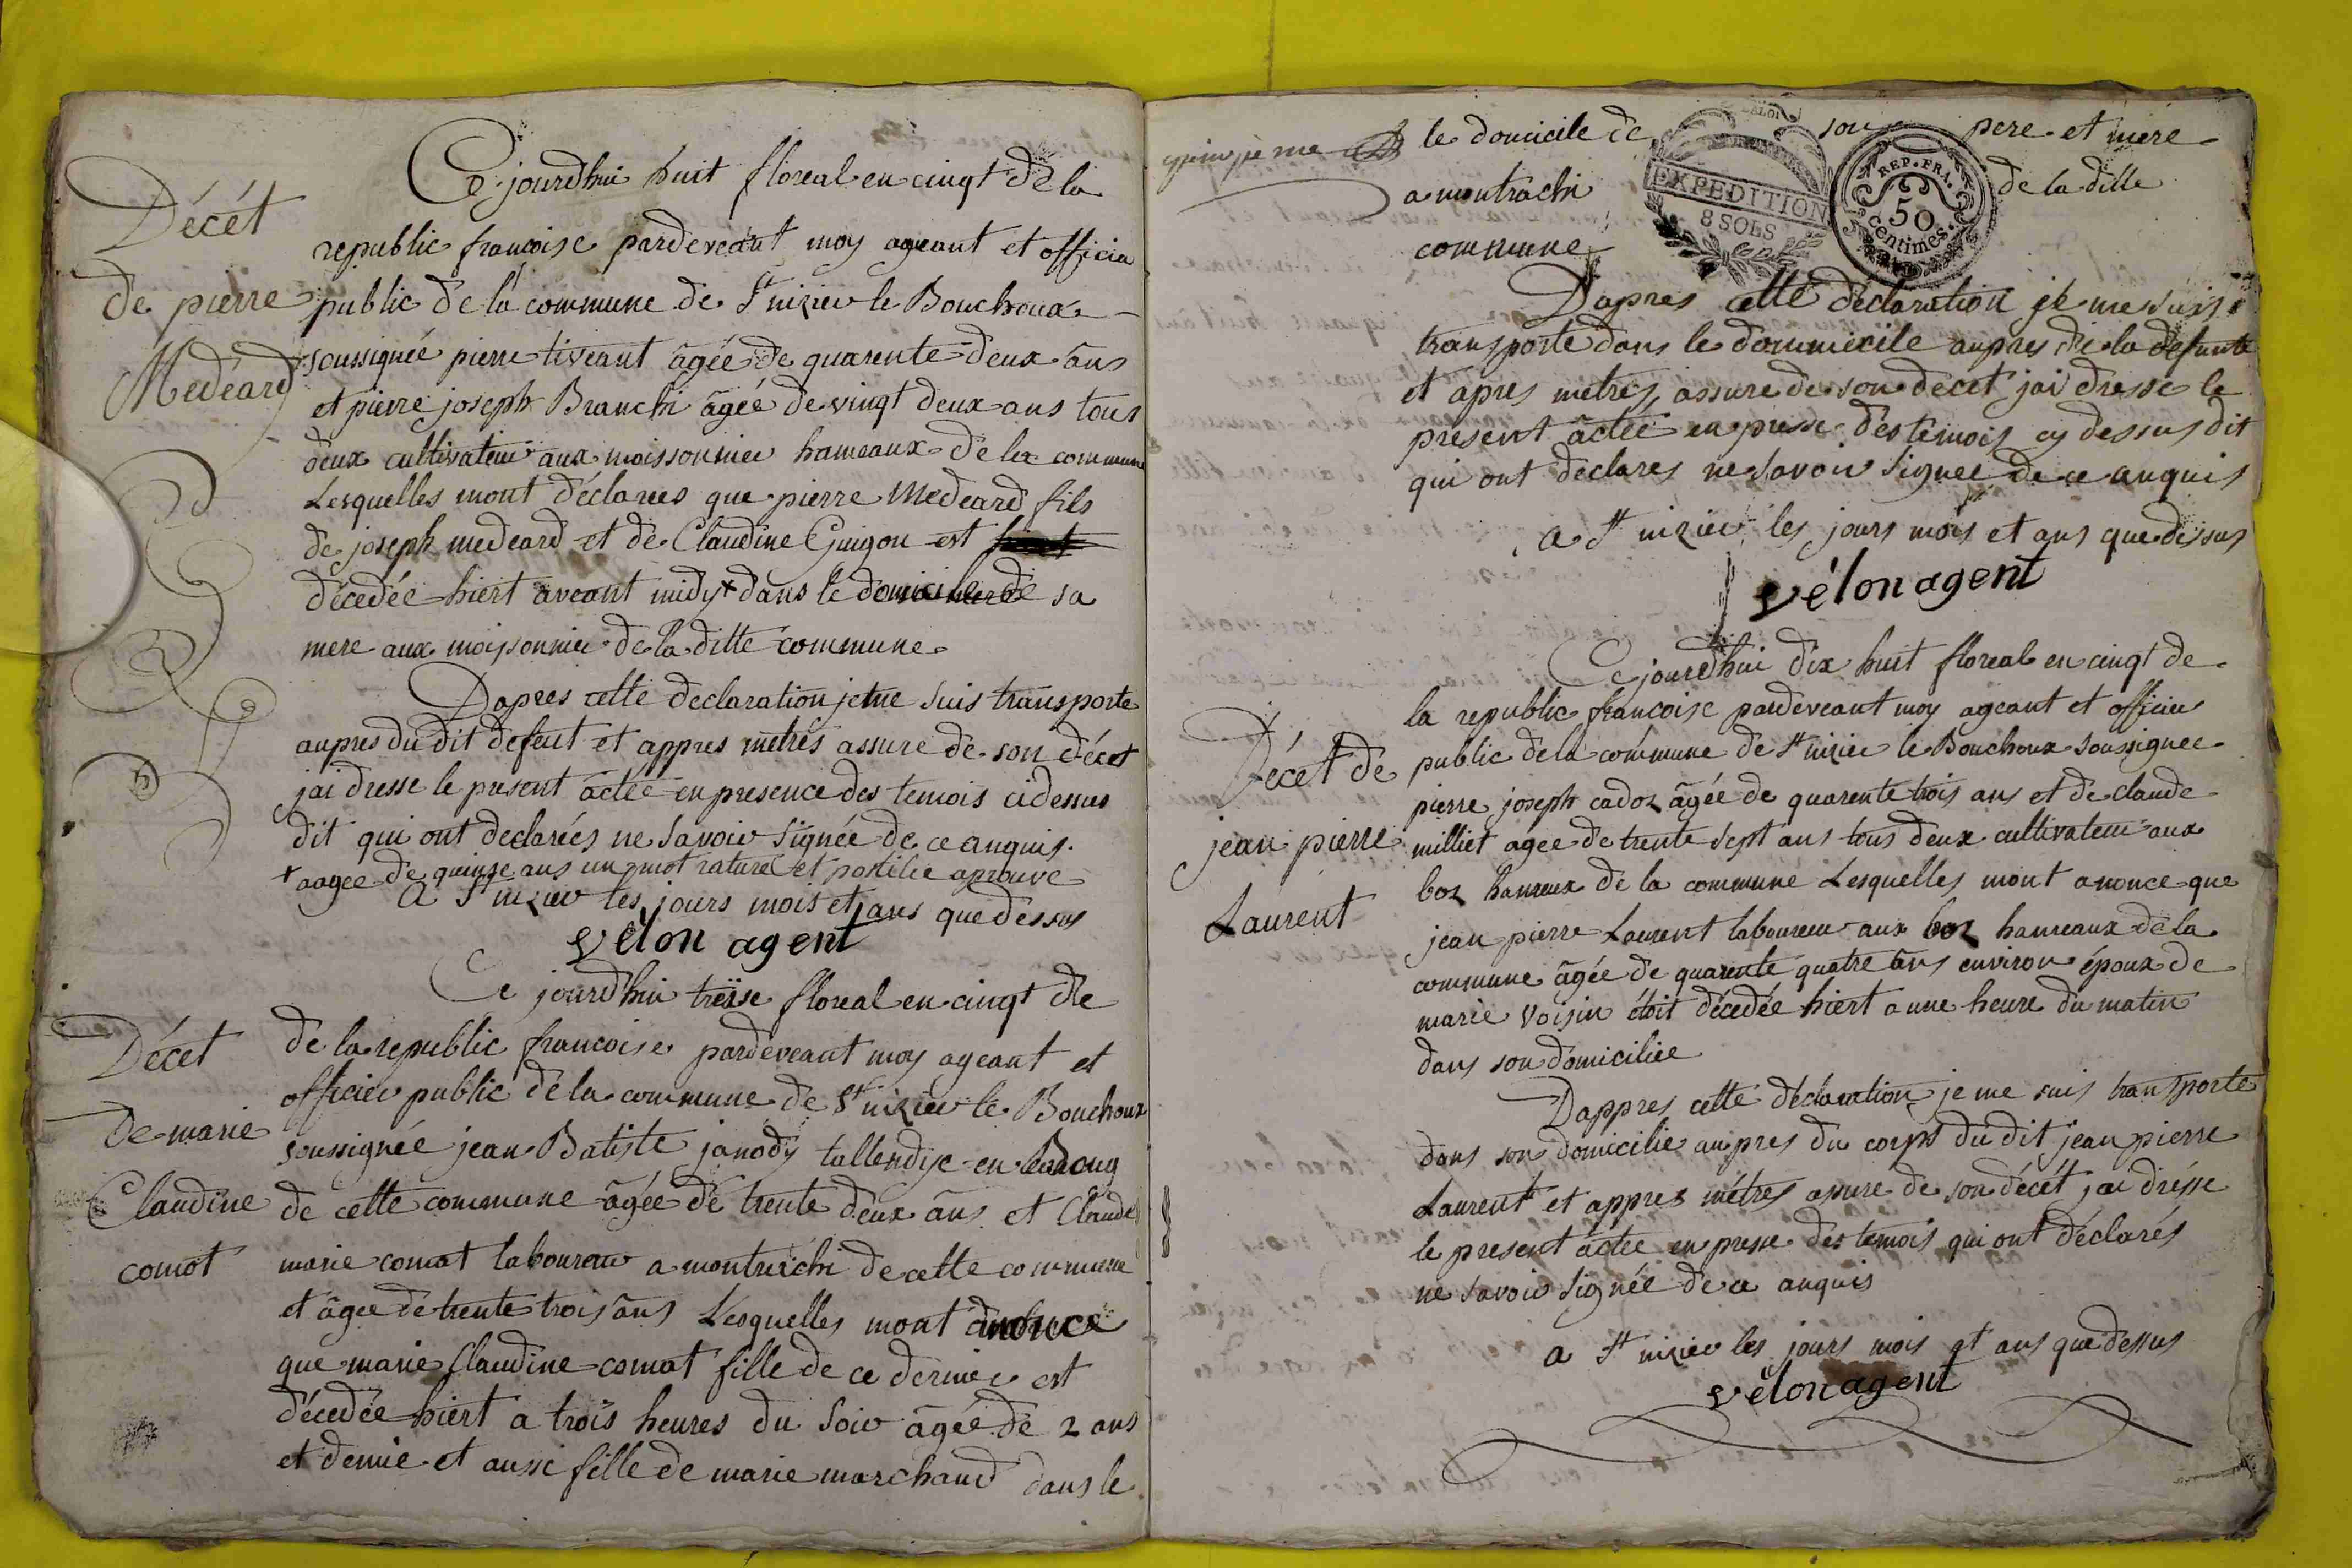 Décét
de pierre
Medéard
Ce jourdhui huit floreal en cinqt dé la
republic francoise pardeveant moy ageant et officie
public dé la commune de St nizier le Bouchoux
soussignée pierre tiveant âgée de quarente deux ans
et pierre joseph Branchi âgée de vingt deux ans tous
deux cultivateur aux moissonnier hameaux de la commune
Lesquelles mont déclarees que pierre Medeard fils
de joseph medeard et de Claudine Guigon est
décedée hiert aveant midy + dans le domicile de sa
mere aux moissonnier de la ditte commune
Dapres cette declaration je me suis transporte
aupres du dit defeut et appres métrés assure de son décet
jai dresse le present âctée en presence des temois cidessus
dit qui ont declarées ne savoir signée de ce anquis
+ aagee de quinze ans un mot raturé et postilie aprouve
a St nizier les jours mois et ans que dessus
vélon agent
Décet
de marie
Claudine
comot
Ce jourdhui treise floreal en cinqt de
de la republic francoise pardeveant moy ageant et
officier public dé la commune de St nizier le Bouchoux
soussignée jean Batiste janody tallendije en
de cette commune âgée dé trente deux âns et Claude
marie comat laboureur a montrachi de cette commune
et âgee de trente trois âns Lesquelles mont anonce
que marie Claudine comat fille de ce dernier est
décedée hiert a trois heures du soir âgée de 2 ans
et demie et aussi fille de marie marchand dans le
le domicile de son pere et mere
a montrachi de la ditte
commune
EXPEDITION
8 SOLS
REP. FRA.
50
centimes.
Dapres cette déclaration je me suis
transporté dans le dommicile aupres de la defunte
et apres métres assure de son decet jai dresse le
présent âctée en presse des témois cy dessus dit
qui ont declares ne savoir signee de ce anquis
a St nizier les jours mois et ans que dessus
vélon agent
Décet de
jean pierre
Laurent
Ce jourdhui dix huit floreal en cinqt de
la republic francoise pardeveant moy ageant et officier
public de la commune de St nizier le Bouchoux soussignee
pierre joseph cadoz âgée de quarente trois ans et de claude
milliet agee de trente sept ans tous deux cultivateur aux
boz hameux de la commune Lesquelles mont anonce que
jean pierre Laurent laboureur aux boz hameaux de la
commune âgée de quarente quatre âns environ époux de
marie voisin étoit décedée hiert a une heure du matin
dans son domicilie
Dappres cette déclaration je me suis transporte
dans son domicilie aupres du corps du dit jean pierre
Laurent et appres métres assure de son décét jai drésse
le present âctée en presse des temois qui ont déclarés
ne savoir signée de ce anquis
a St nizier les jours mois et ans que dessus
vélon agent